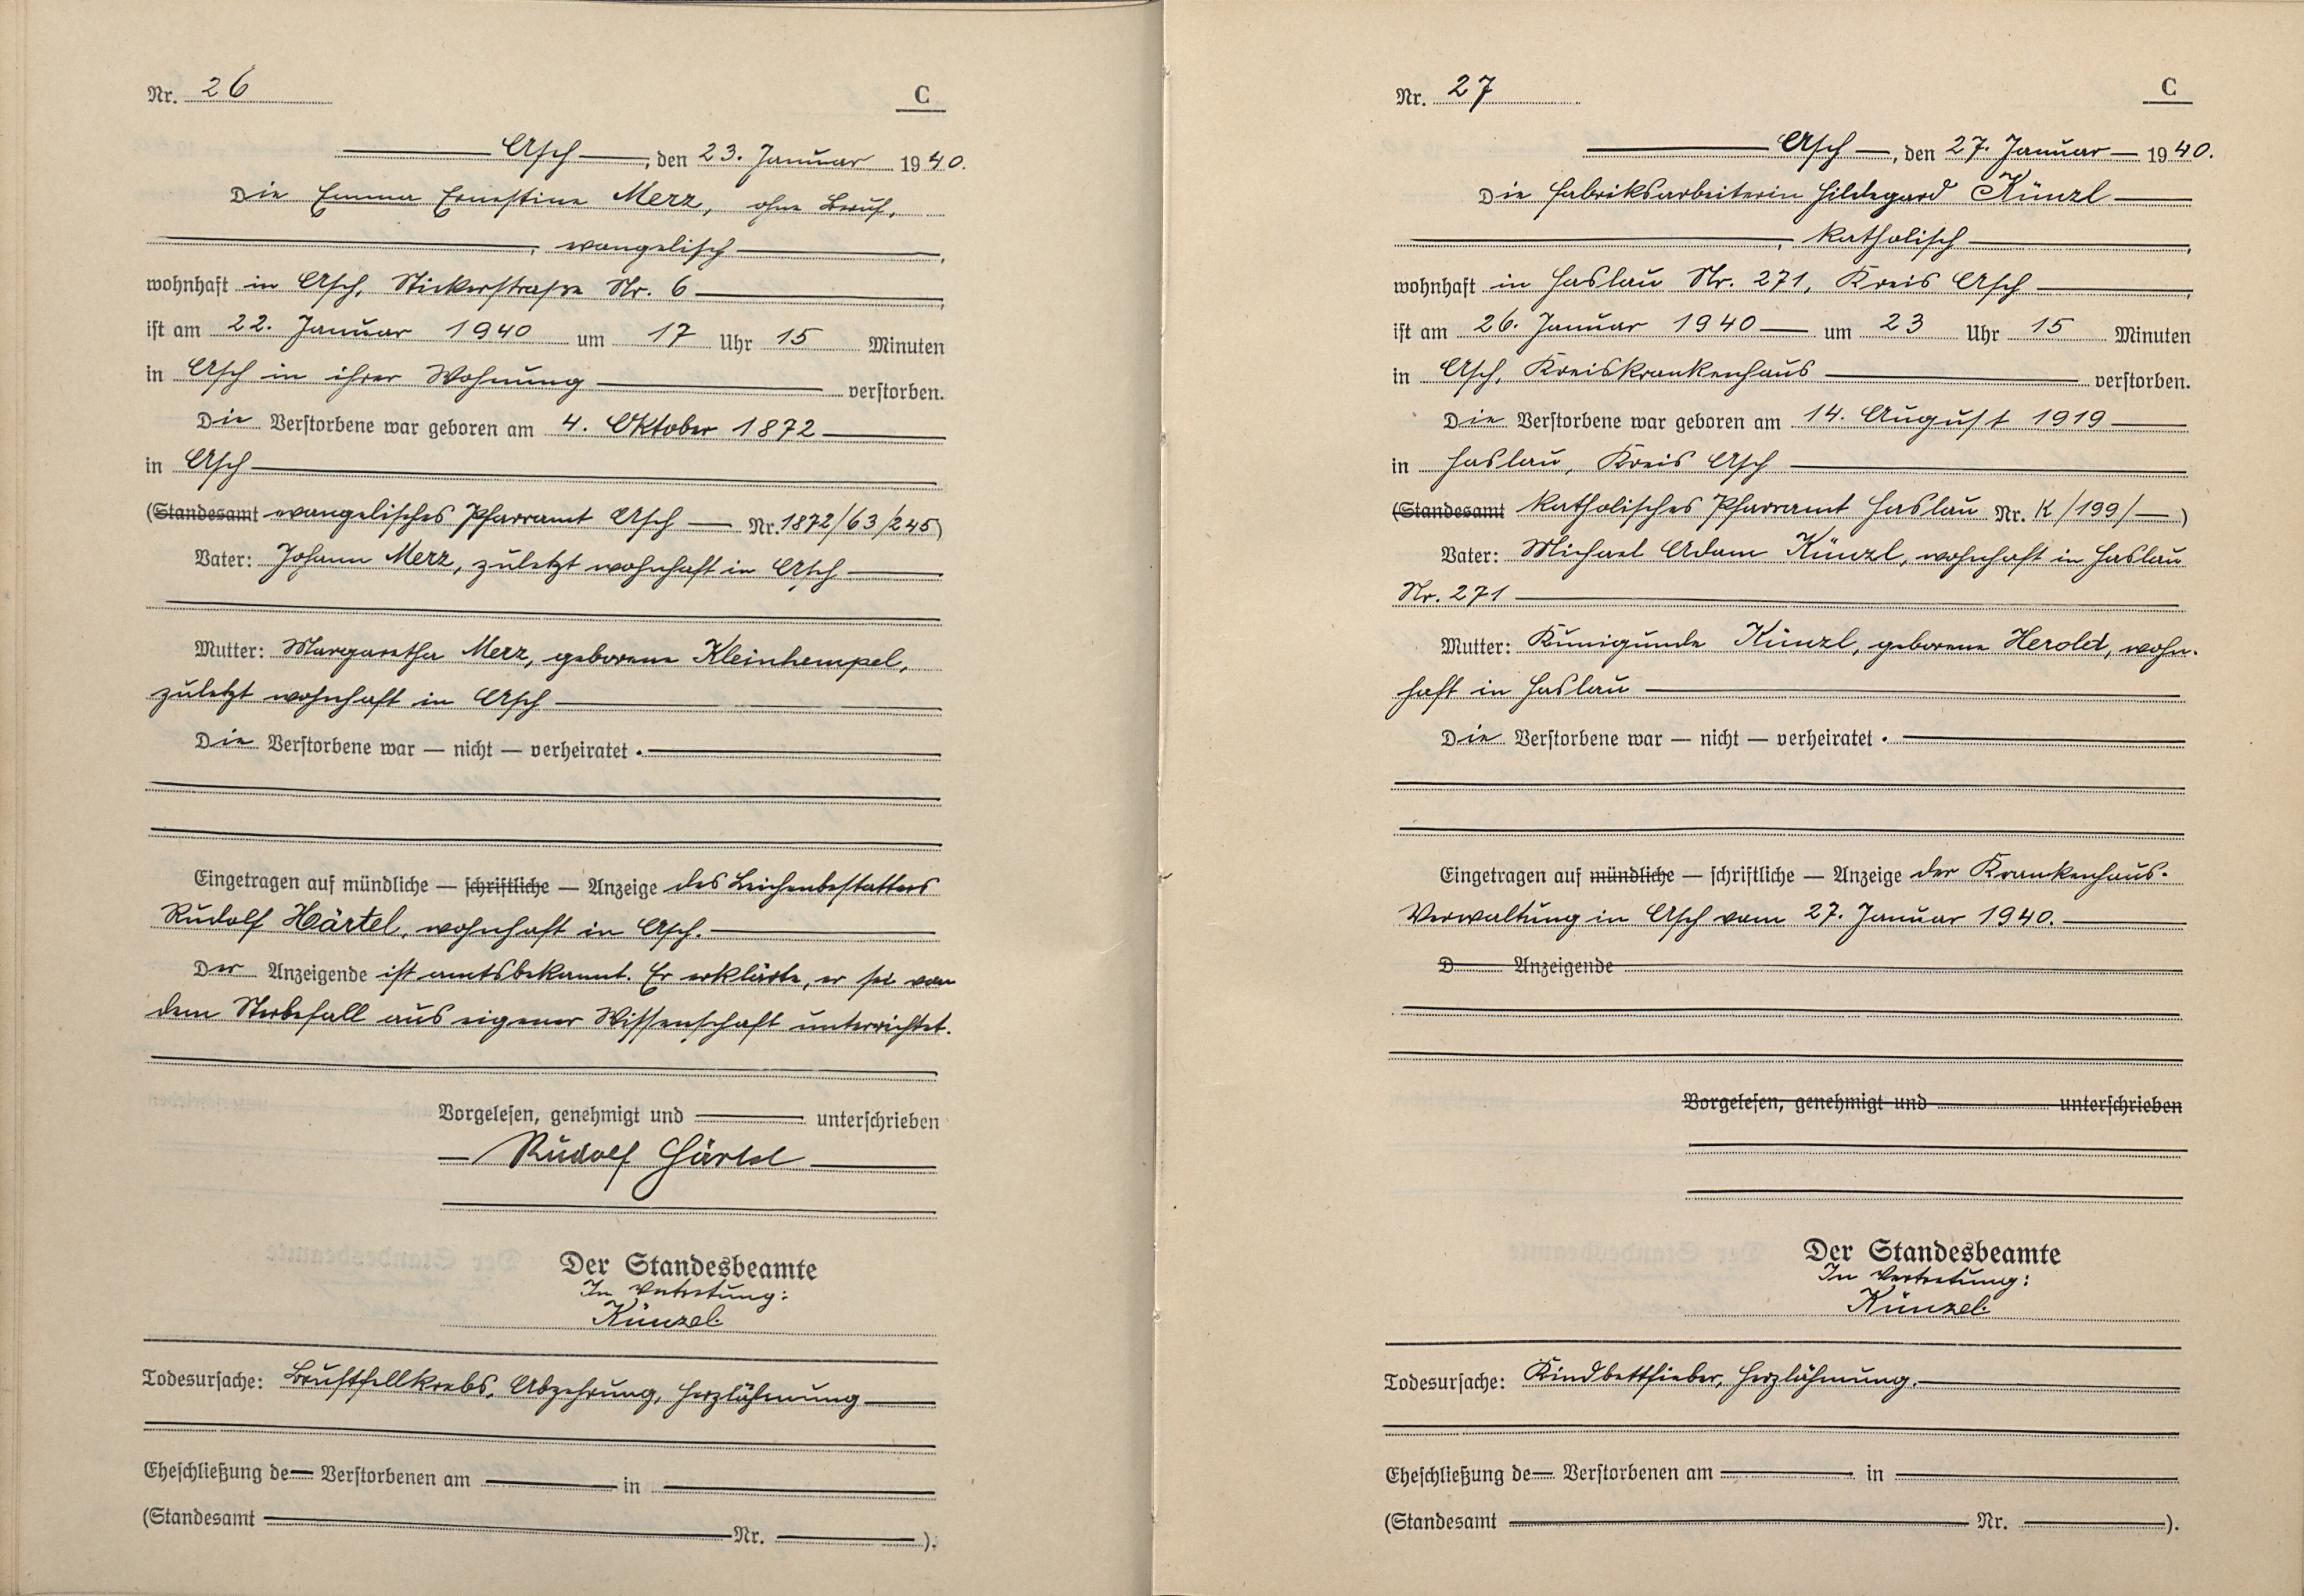 Nr. 26
C
Asch, den 23. Januar 1940.
Die Emma Ernestine Merz, ohne Beruf,
, evangelisch,
wohnhaft in Asch, Stickerstraße Nr. 6,
ist am 22. Januar 1940 um 17 Uhr 15 Minuten
in Asch in ihrer Wohnung verstorben.
Die Verstorbene war geboren am 4. Oktober 1872
in Asch
(Standesamt evangelisches Pfarramt Asch Nr. 1872/63/245)
Vater: Johann Merz, zuletzt wohnhaft in Asch
Mutter: Margaretha Merz, geborene Kleinhempel,
zuletzt wohnhaft in Asch
Die Verstorbene war — nicht — verheiratet.
Eingetragen auf mündliche — schriftliche — Anzeige des Leichenbestatters
Rudolf Härtel, wohnhaft in Asch.
Der Anzeigende ist amtsbekannt. Er erklärte, er sei von
dem Sterbefall aus eigener Wissenschaft unterrichtet.
Vorgelesen, genehmigt und unterschrieben
Rudolf Härtel
Der Standesbeamte
In Vertretung:
Künzel.
Todesursache: Brustfellkrebs, Abzehrung, Herzlähmung
Eheschließung de Verstorbenen am in
(Standesamt Nr. ).
Nr. 27
C
Asch, den 27. Januar 1940.
Die Fabriksarbeiterin Hildegard Künzl
, katholisch,
wohnhaft in Haslau Nr. 271, Kreis Asch,
ist am 26. Januar 1940 um 23 Uhr 15 Minuten
in Asch, Kreiskrankenhaus verstorben.
Die Verstorbene war geboren am 14. August 1919
in Haslau, Kreis Asch
(Standesamt katholisches Pfarramt Haslau Nr. K/199/—)
Vater: Michael Adam Künzl, wohnhaft in Haslau
Nr. 271
Mutter: Kunigunde Künzl, geborene Herold, wohn-
haft in Haslau
Die Verstorbene war — nicht — verheiratet.
Eingetragen auf mündliche — schriftliche — Anzeige der Krankenhaus-
Verwaltung in Asch vom 27. Januar 1940.
D Anzeigende
Vorgelesen, genehmigt und unterschrieben
Der Standesbeamte
In Vertretung:
Künzel.
Todesursache: Kindbettfieber, Herzlähmung.
Eheschließung de Verstorbenen am in
(Standesamt Nr. ).